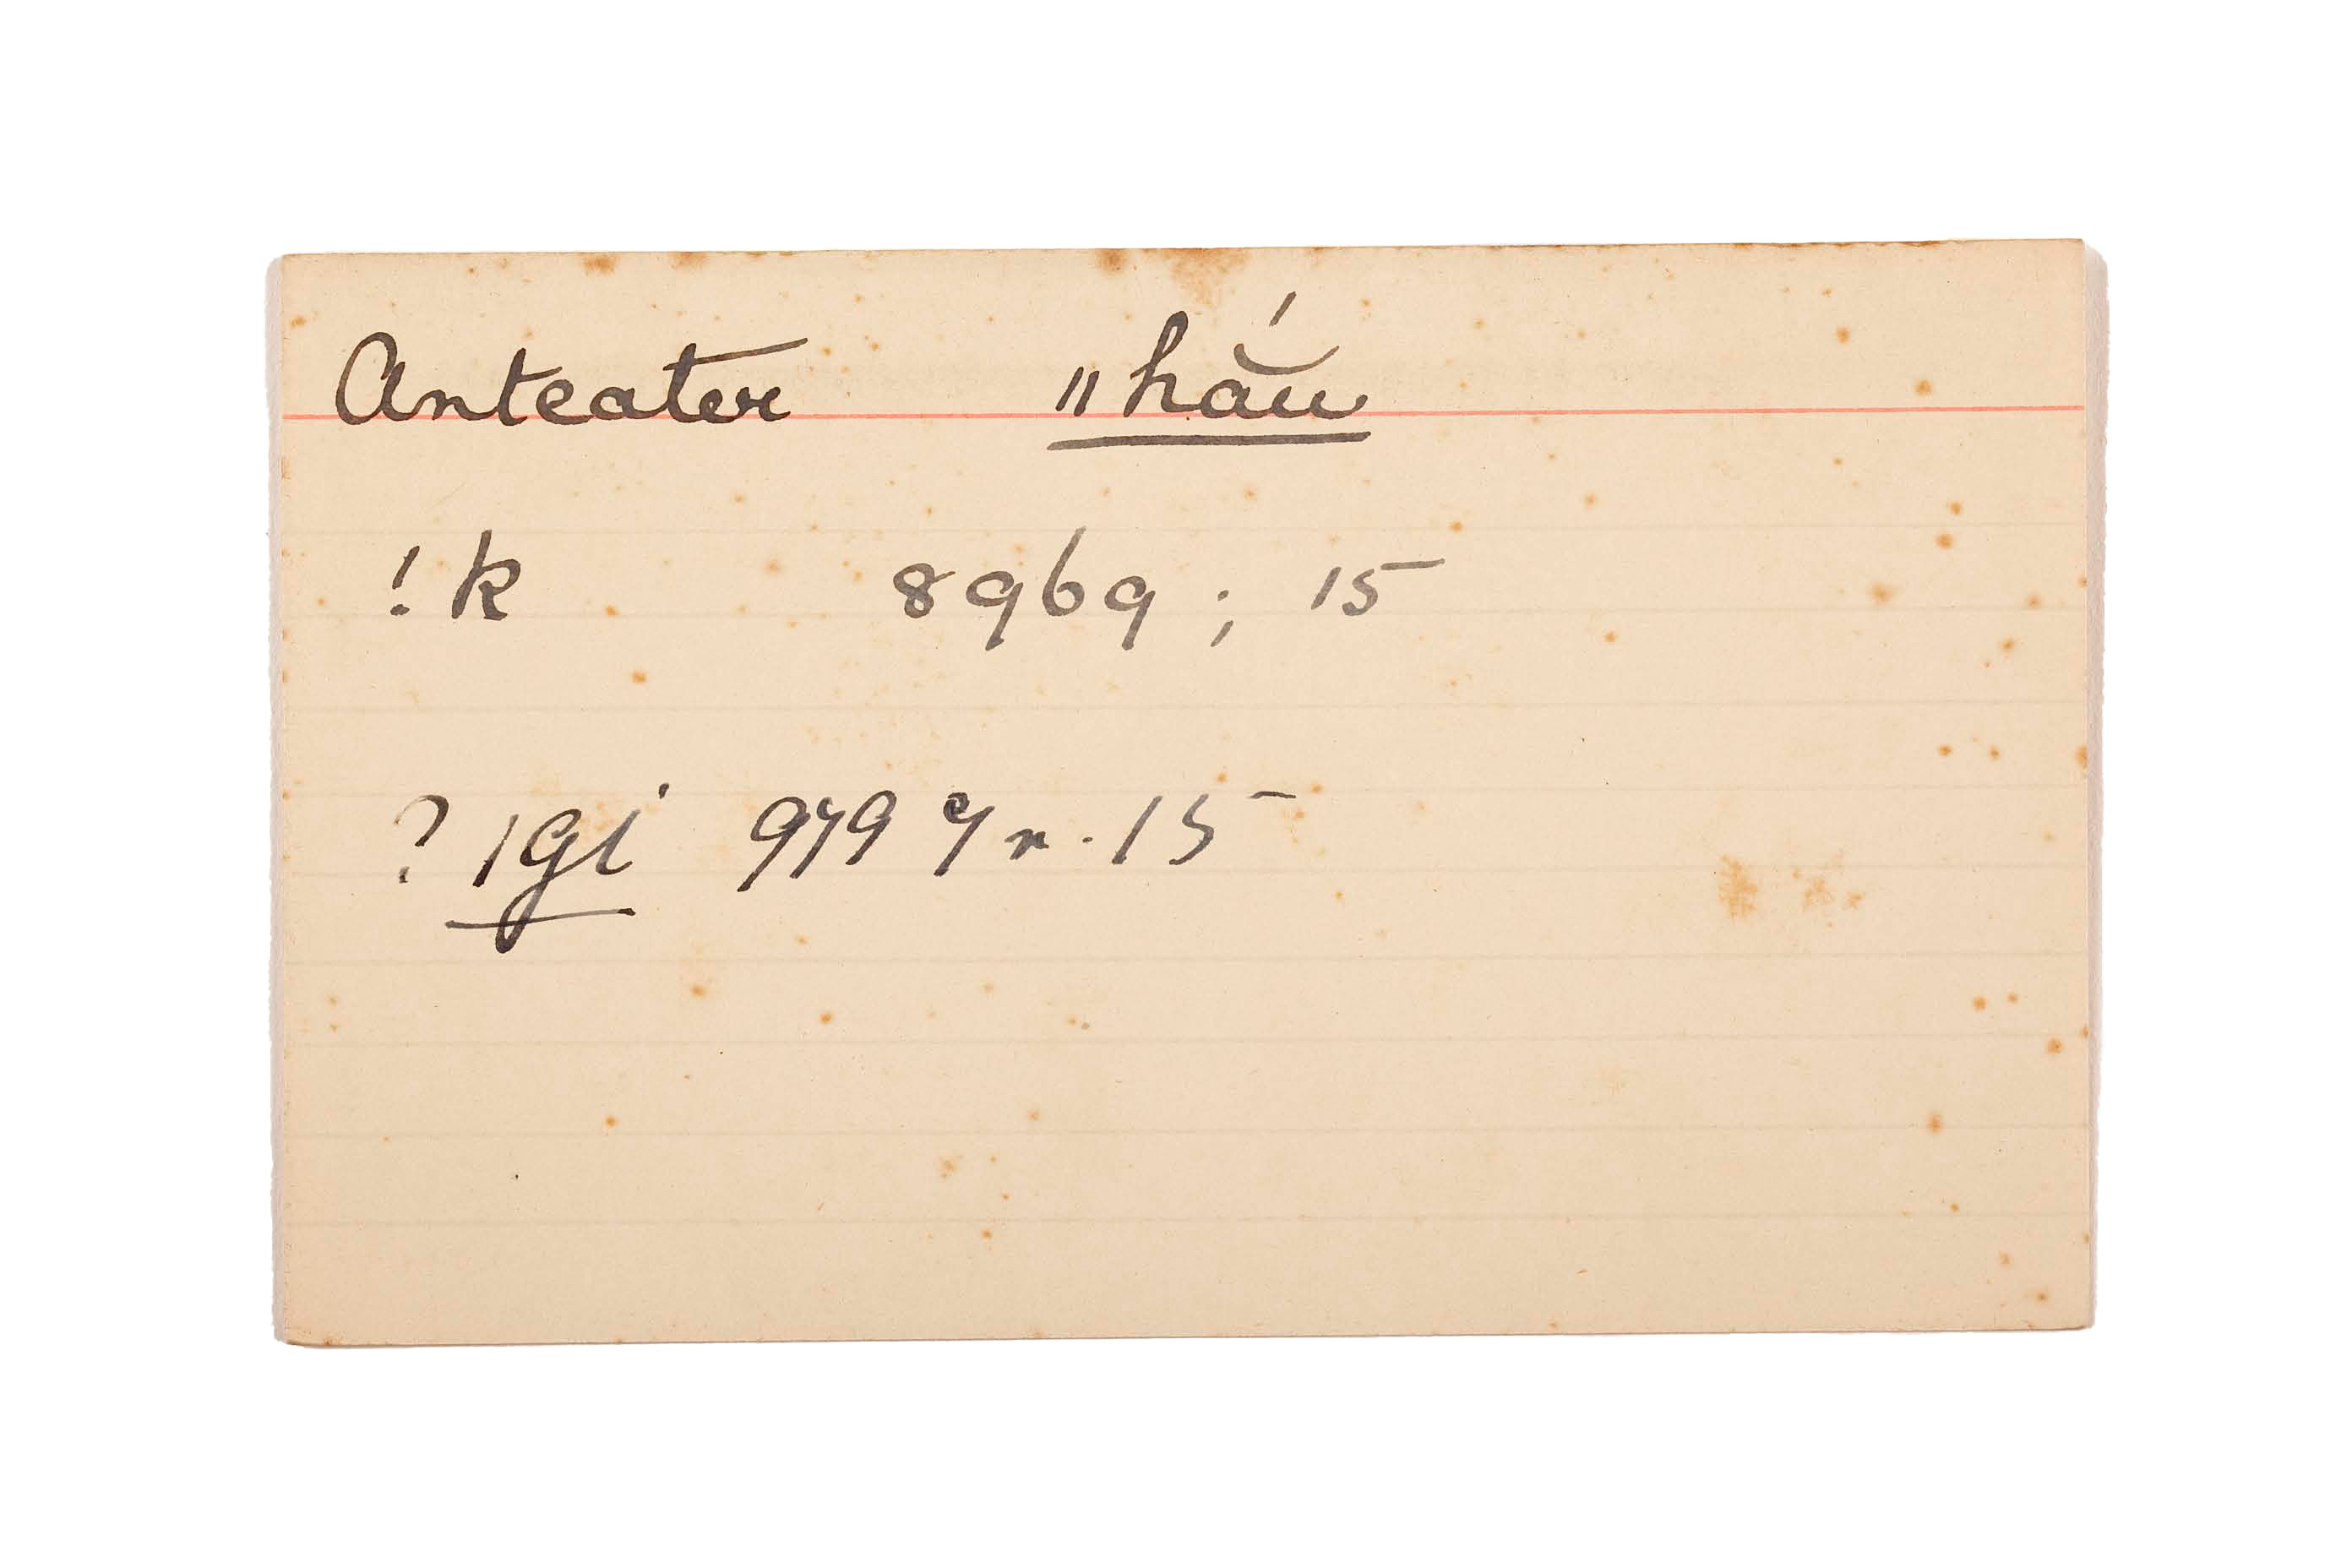 Anteater ǁhắu
!k 8969; 15
? ǀgi 9797 n. 15